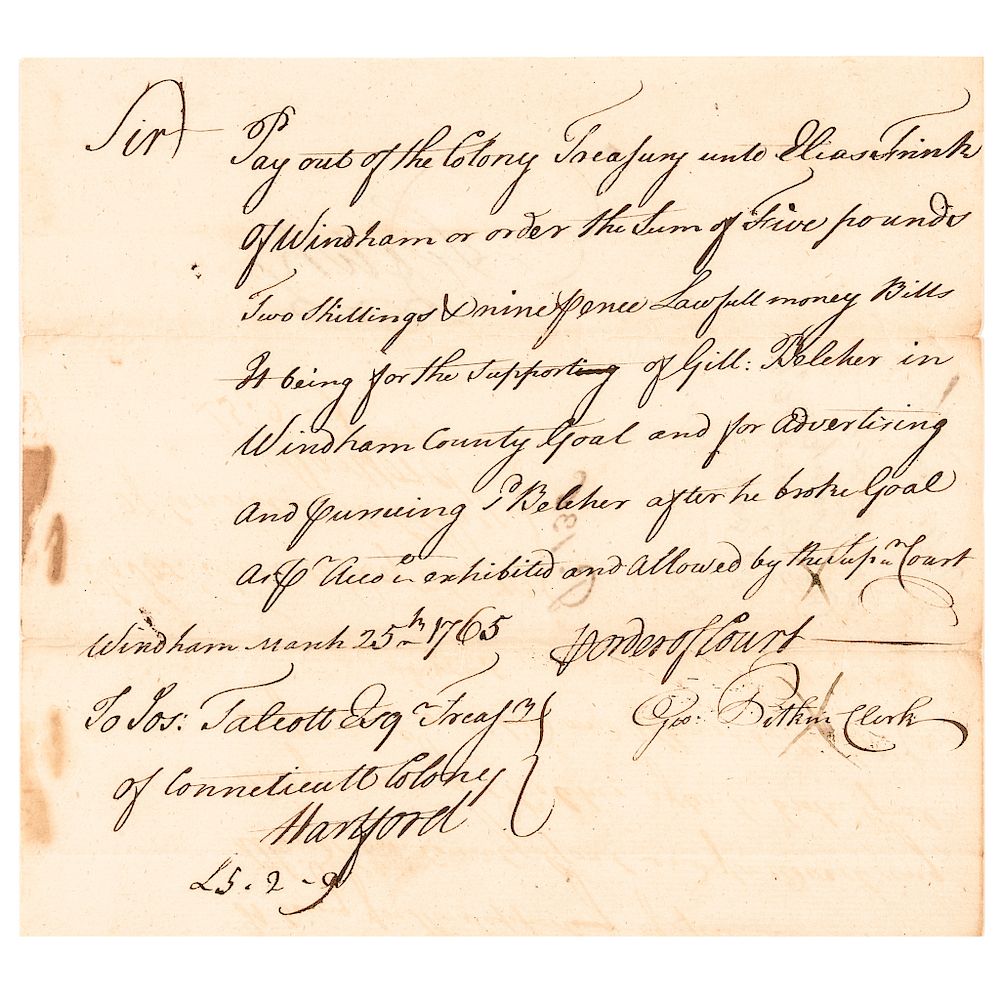 Sir
Pay out of the Colony Treasury unto Elias Frink
of Windham or order the Sum of Five pounds
Two Shillings & nine pence Lawfull money Bills
It being for the Supporting of Gill: Belcher in
Windham County Goal and for Advertising
And pursueing sd Belcher after he broke Goal
As pr Acco exhibited and Allowed by the Supr Court
Windham March 25th 1765
pr order of Court
To Jos: Talcott Esqr Treasr
Geo: Pitkin Clerk
of Conneticutt Colony
Hartford
£5-2-9